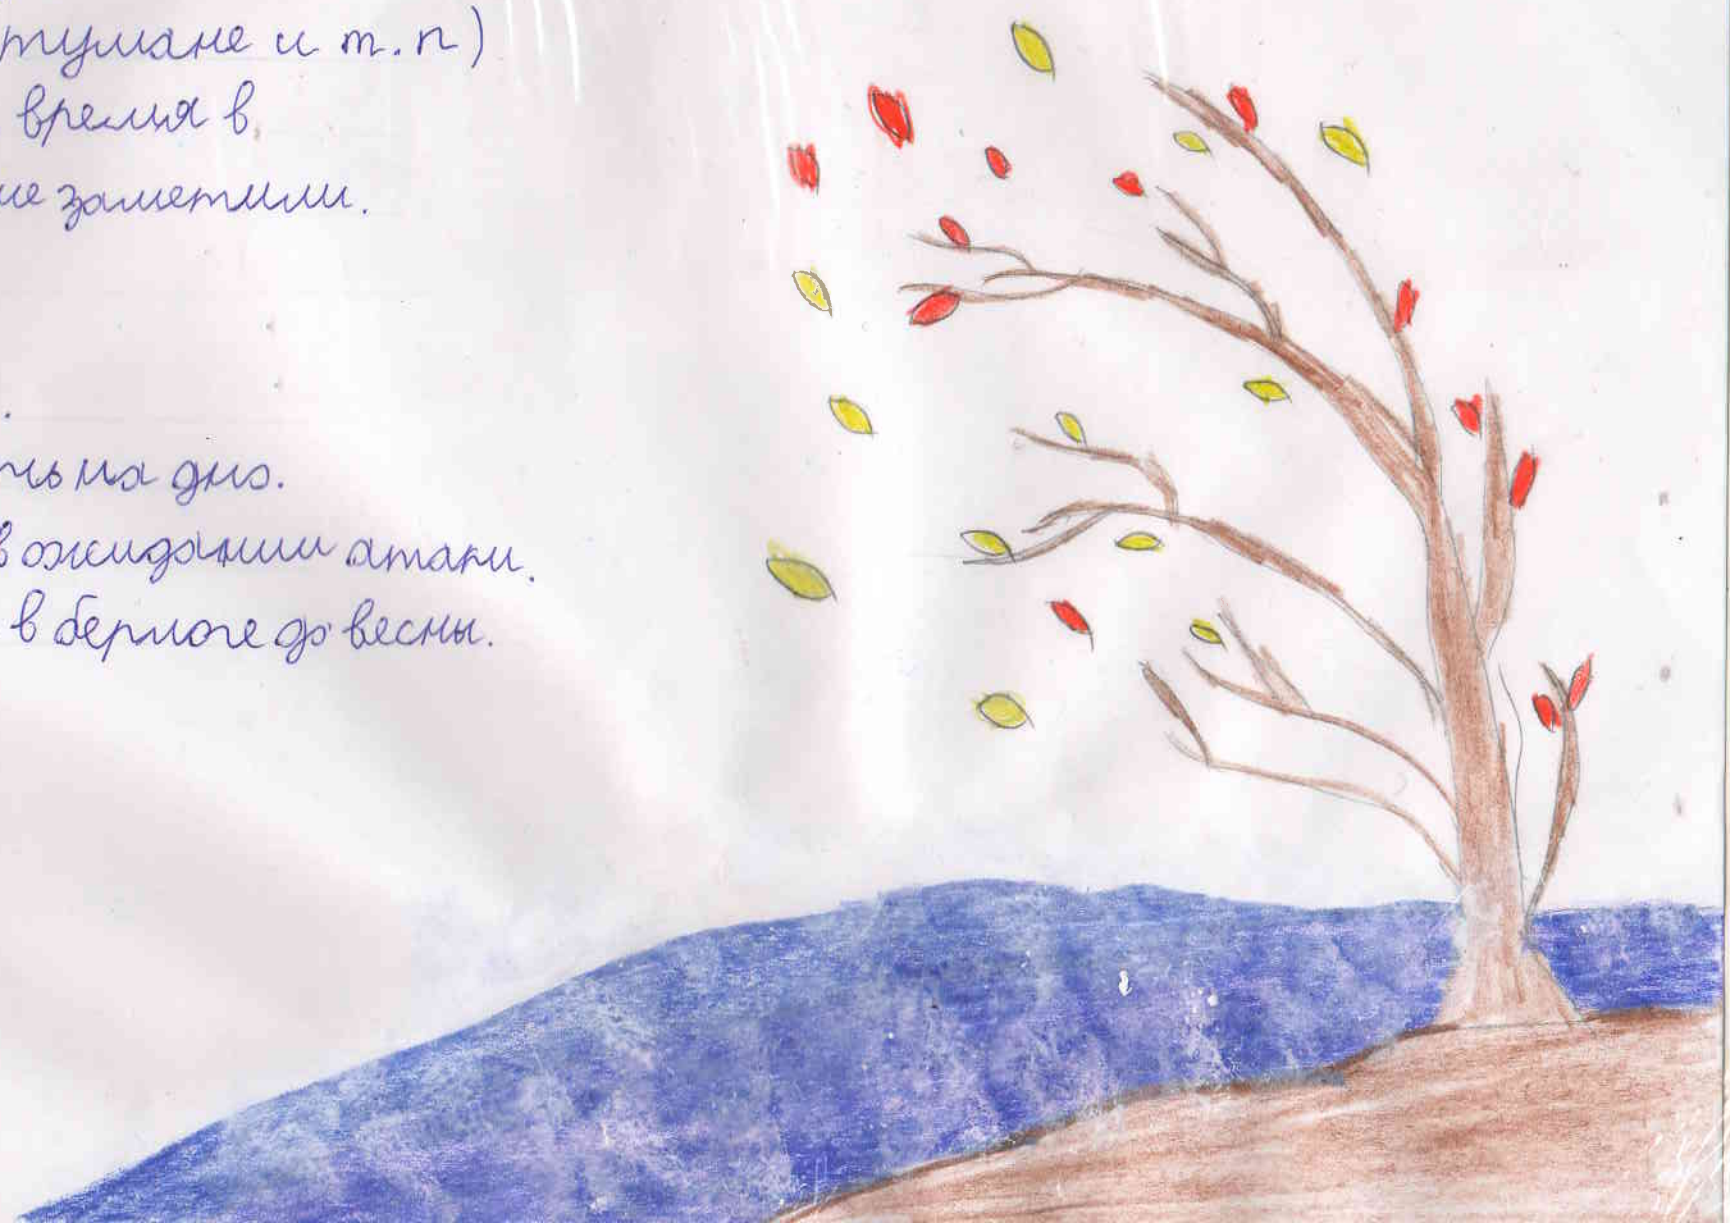 тумане и т.п)
время в
не заметили.
.
чь на дно.
в ожидании атаки.
в берлоге до весны.